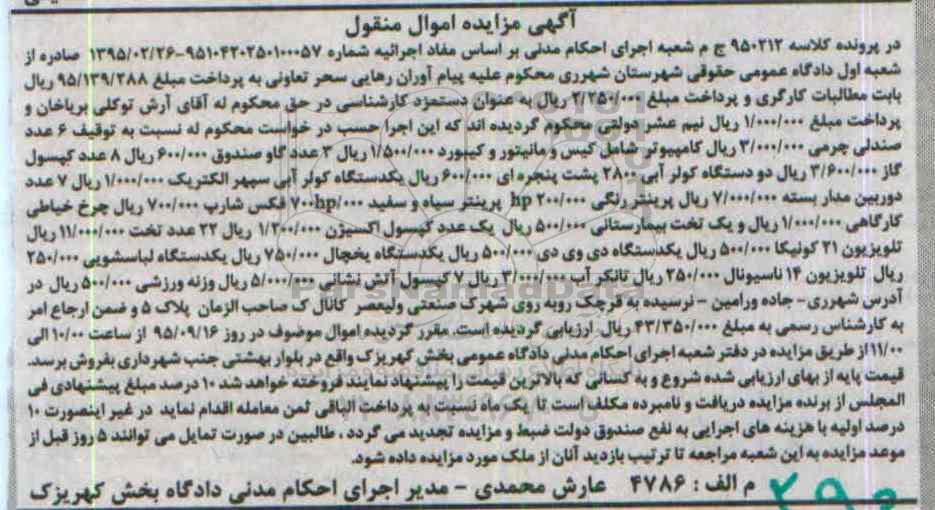 آگهی مزایده اموال منقول
در پرونده کلاسه ۹۵۰۲۱۲ ج م شعبه اجرای احکام مدنی بر اساس مفاد اجرائیه شماره ۹۵۱۰۴۲۰۲۵۰۱۰۰۰۵۷-۱۳۹۵/۰۲/۲۶ صادره از
شعبه اول دادگاه عمومی حقوقی شهرستان شهرری محکوم علیه پیام آوران رهایی سحر تعاونی به پرداخت مبلغ ۹۵/۱۳۹/۲۸۸ ریال
بابت مطالبات کارگری و پرداخت مبلغ ۲/۲۵۰/۰۰۰ ریال به عنوان دستمزد کارشناسی در حق محکوم له آقای آرش توکلی بریاخان و
پرداخت مبلغ ۱/۰۰۰/۰۰۰ ریال نیم عشر دولتی محکوم گردیده اند که این اجرا حسب در خواست محکوم له نسبت به توقیف ۶ عدد
صندلی چرمی ۳/۰۰۰/۰۰۰ ریال کامپیوتر شامل کیس و مانیتور و کیبورد ۱/۵۰۰/۰۰۰ ریال ۳ عدد گاو صندوق ۶۰۰/۰۰۰ ریال ۸ عدد کپسول
گاز ۳/۶۰۰/۰۰۰ ریال دو دستگاه کولر آبی ۲۸۰۰ پشت پنجره ای ۶۰۰/۰۰۰ ریال یکدستگاه کولر آبی سپهر الکتریک ۱/۰۰۰/۰۰۰ ریال ۷ عدد
دوربین مدار بسته ۷/۰۰۰/۰۰۰ ریال پرینتر رنگی hp ۲۰۰/۰۰۰ پرینتر سیاه و سفید ۷۰۰hp/۰۰۰ فکس شارپ ۷۰۰/۰۰۰ ریال چرخ خیاطی
کارگاهی ۱/۰۰۰/۰۰۰ ریال و یک تخت بیمارستانی ۵۰۰/۰۰۰ ریال یک عدد کپسول اکسیژن ۱/۲۰۰/۰۰۰ ریال ۲۲ عدد تخت ۱۱/۰۰۰/۰۰۰ ریال
تلویزیون ۲۱ کونیکا ۵۰۰/۰۰۰ ریال یکدستگاه دی وی دی ۵۰۰/۰۰۰ ریال یکدستگاه یخچال ۷۵۰/۰۰۰ ریال یکدستگاه لباسشویی ۲۵۰/۰۰۰
ریال تلویزیون ۱۴ ناسیونال ۲۵۰/۰۰۰ ریال تانکر آب ۳/۰۰۰/۰۰۰ ریال ۷ کپسول آتش نشانی ۵/۰۰۰/۰۰۰ ریال وزنه ورزشی ۵۰۰/۰۰۰ ریال در
آدرس شهرری- جاده ورامین - نرسیده به قرچک روبه روی شهرک صنعتی ولیعصر کانال ک صاحب الزمان پلاک ۵ و ضمن ارجاع امر
به کارشناس رسمی به مبلغ ۴۳/۳۵۰/۰۰۰ ریال ارزیابی گردیده است. مقرر گردیده اموال موضوف در روز ۹۵/۰۹/۱۶ از ساعت ۱۰/۰۰ الی
۱۱/۰۰ از طریق مزایده در دفتر شعبه اجرای احکام مدنی دادگاه عمومی بخش کهریزک واقع در بلوار بهشتی جنب شهرداری بفروش برسد.
قیمت پایه از بهای ارزیابی شده شروع و به کسانی که بالاترین قیمت را پیشنهاد نمایند فروخته خواهد شد ۱۰ درصد مبلغ پیشنهادی فی
المجلس از برنده مزایده دریافت و نامبرده مکلف است تا یک ماه نسبت به پرداخت الباقی ثمن معامله اقدام نماید در غیر اینصورت ۱۰
درصد اولیه با هزینه های اجرایی به نفع صندوق دولت ضبط و مزایده تجدید می گردد ، طالبین در صورت تمایل می توانند ۵ روز قبل از
موعد مزایده به این شعبه مراجعه تا ترتیب بازدید آنان از ملک مورد مزایده داده شود.
م الف : ۴۷۸۶ عارش محمدی - مدیر اجرای احکام مدنی دادگاه بخش کهریزک
ParsNamadData